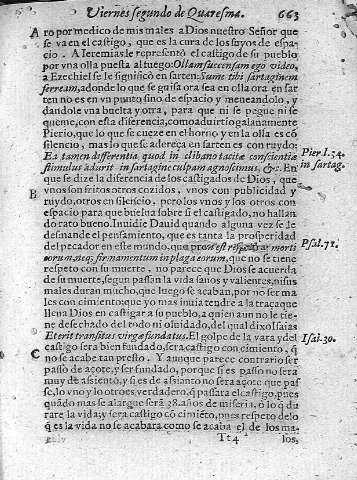 Viernes segundo de Quaresma. 663
A ro por medico de mis males a Dios nuestro Señor que
se va en el castigo, que es la cura de los suyos de espa-
cio. A Ieremias le representò el castigo de su pueblo
por vna olla puesta al fuego: Ollam succensam ego video,
a Ezechiel se le significò en sarten: Sume tibi sartaginem
ferream, adonde lo que se guisa ora sea en olla ora en sar
ten no es en vn punto sino de espacio y meneandolo, y
dandole vna buelta y otra, para que ni se pegue ni se
queme, con esta diferencia, como aduirtio galanamente
Pierio, que lo que se cueze en el horno y en la olla es cõ
silencio, mas lo que se adereça en sarten es con ruydo:
Ea tamen differentia quod in clibano tacitæ conscientiæ Pier l. 54.
stimulus adurit in sartagine culpam agnoscimus, &c. En in sartag.
que se dize la diferencia de los castigados de Dios, que
B vnos son fritos otros cozidos, vnos con publicidad y
ruydo, otros en silencio, pero los vnos y los otros con
espacio para que buelua sobre si el castigado, no hallan
do rato bueno. Inuidie Dauid quando alguna vez se le
desmande el pensamiento, que es tanta la prosperidad
del pecador en este mundo, que non est respectus morti Psal. 72.
eorum, neq; firmamentum in plaga eorum, que no se tiene
respeto con su muerte, no parece que Dios se acuerda
de su muerte, segun passan la vida sanos y valientes, ni sus
males duran mucho, que luego se acaban, por no ser ma
les con cimiento: que yo mas inuia tendre a la traça que
lleua Dios en castigar a su pueblo, a quien aun no le tie-
ne desechado del todo ni oluidado, del qual dixo Isaias
Et erit transitus virgæ fundatus. El golpe de la vara y del Isai. 30.
C castigo sera bien fundado, sera castigo con cimiento, q̃
no se acabe tan presto. Y aunque parece contrario ser
passo de açote, y ser fundado, porque si es passo no sera
muy de assiento, y si es de assianto no sera açote que pas
se, lo vno y lo otro es verdadero, q̃ passara el castigo, pues
quãdo mas se alargue serã 38. años de miseria, ò lo q̃ du
rare la vida; y sera castigo cõ cimiẽto, pues respeto de lo
q̃ es la vida no se acabara como se acaba el de los ma-
Tt 4 los,